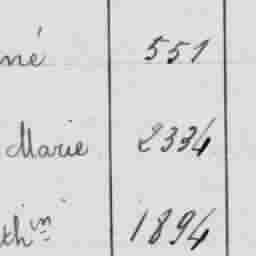 né 551
Marie 2334
thin 1894